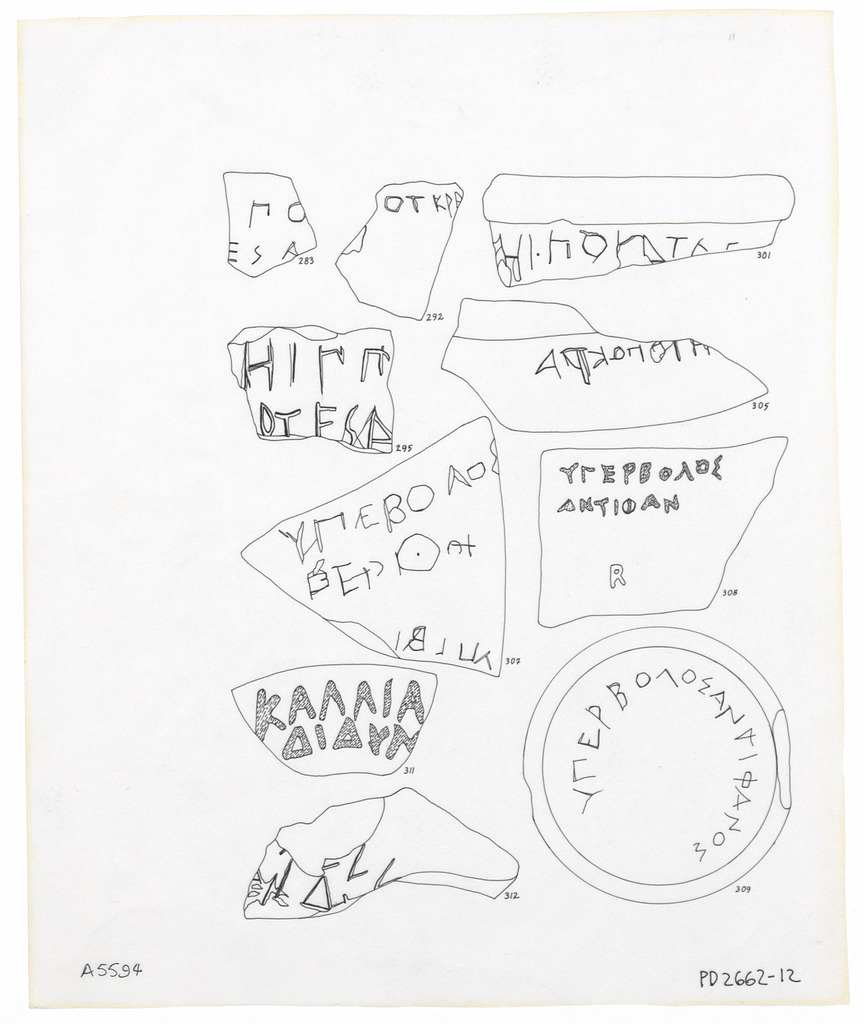 ΠΟ
ΕSΑ
283
ΟΤΚΡ
292
ΗΙ·ΠΟΚΑΤΑ
301
ΗΙΓΠ
ΟΤΕSΑ
295
305
ΥΠΕΒΟΛΟΣ
307
ΥΓΕΡΒΟΛΟΣ
ΑΝΤΙΦΑΝ
R
308
ΚΑΛΛΙΑ
ΔΙΔΥΝ
311
ΥΠΕΡΒΟΛΟΣΑΝΤΙΦΑΝΟΣ
309
312
A5594
PD2662-12